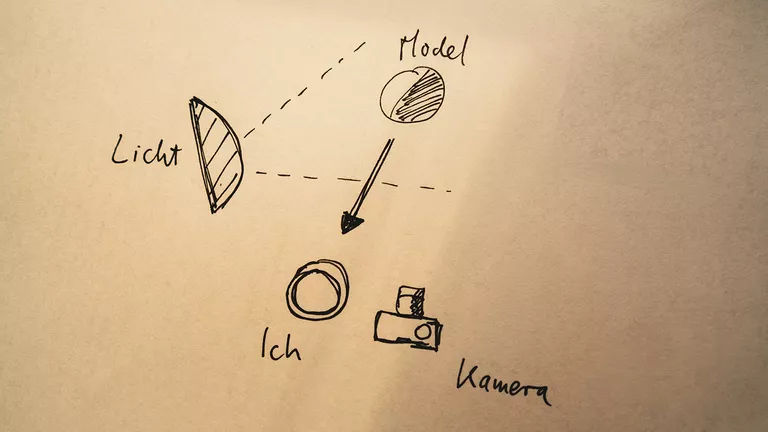 Model
Licht
Ich
Kamera